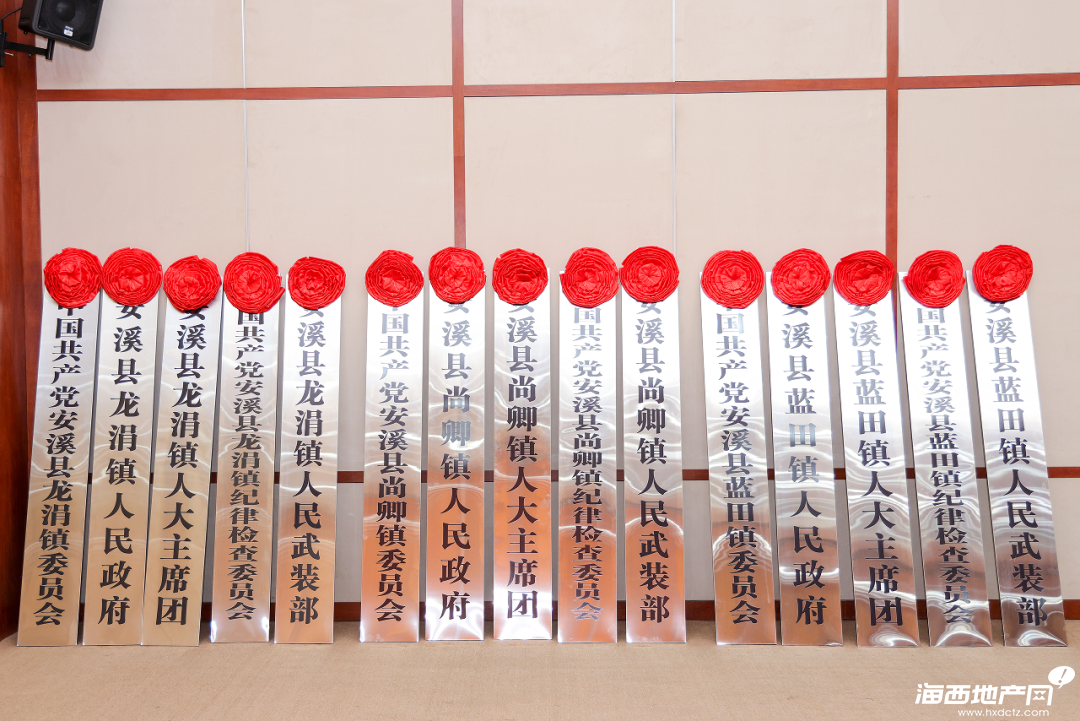 中国共产党安溪县龙涓镇委员会
安溪县龙涓镇人民政府
安溪县龙涓镇人大主席团
国共产党安溪县龙涓镇纪律检查委员会
安溪县龙涓镇人民武装部
中国共产党安溪县尚卿镇委员会
安溪县尚卿镇人民政府
安溪县尚卿镇人大主席团
国共产党安溪县尚卿镇纪律检查委员会
安溪县尚卿镇人民武装部
国共产党安溪县蓝田镇委员会
安溪县蓝田镇人民政府
安溪县蓝田镇人大主席团
国共产党安溪县蓝田镇纪律检查委员会
安溪县蓝田镇人民武装部
海西地产网
www.hxdctz.com